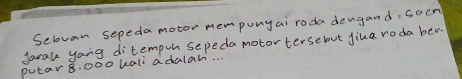 Sebuah sepeda motor mempunyai roda dengan d: 50cm
Jarak yang ditempuh sepeda motor tersebut jika roda ber-
putar 8.000 kali adalah ...